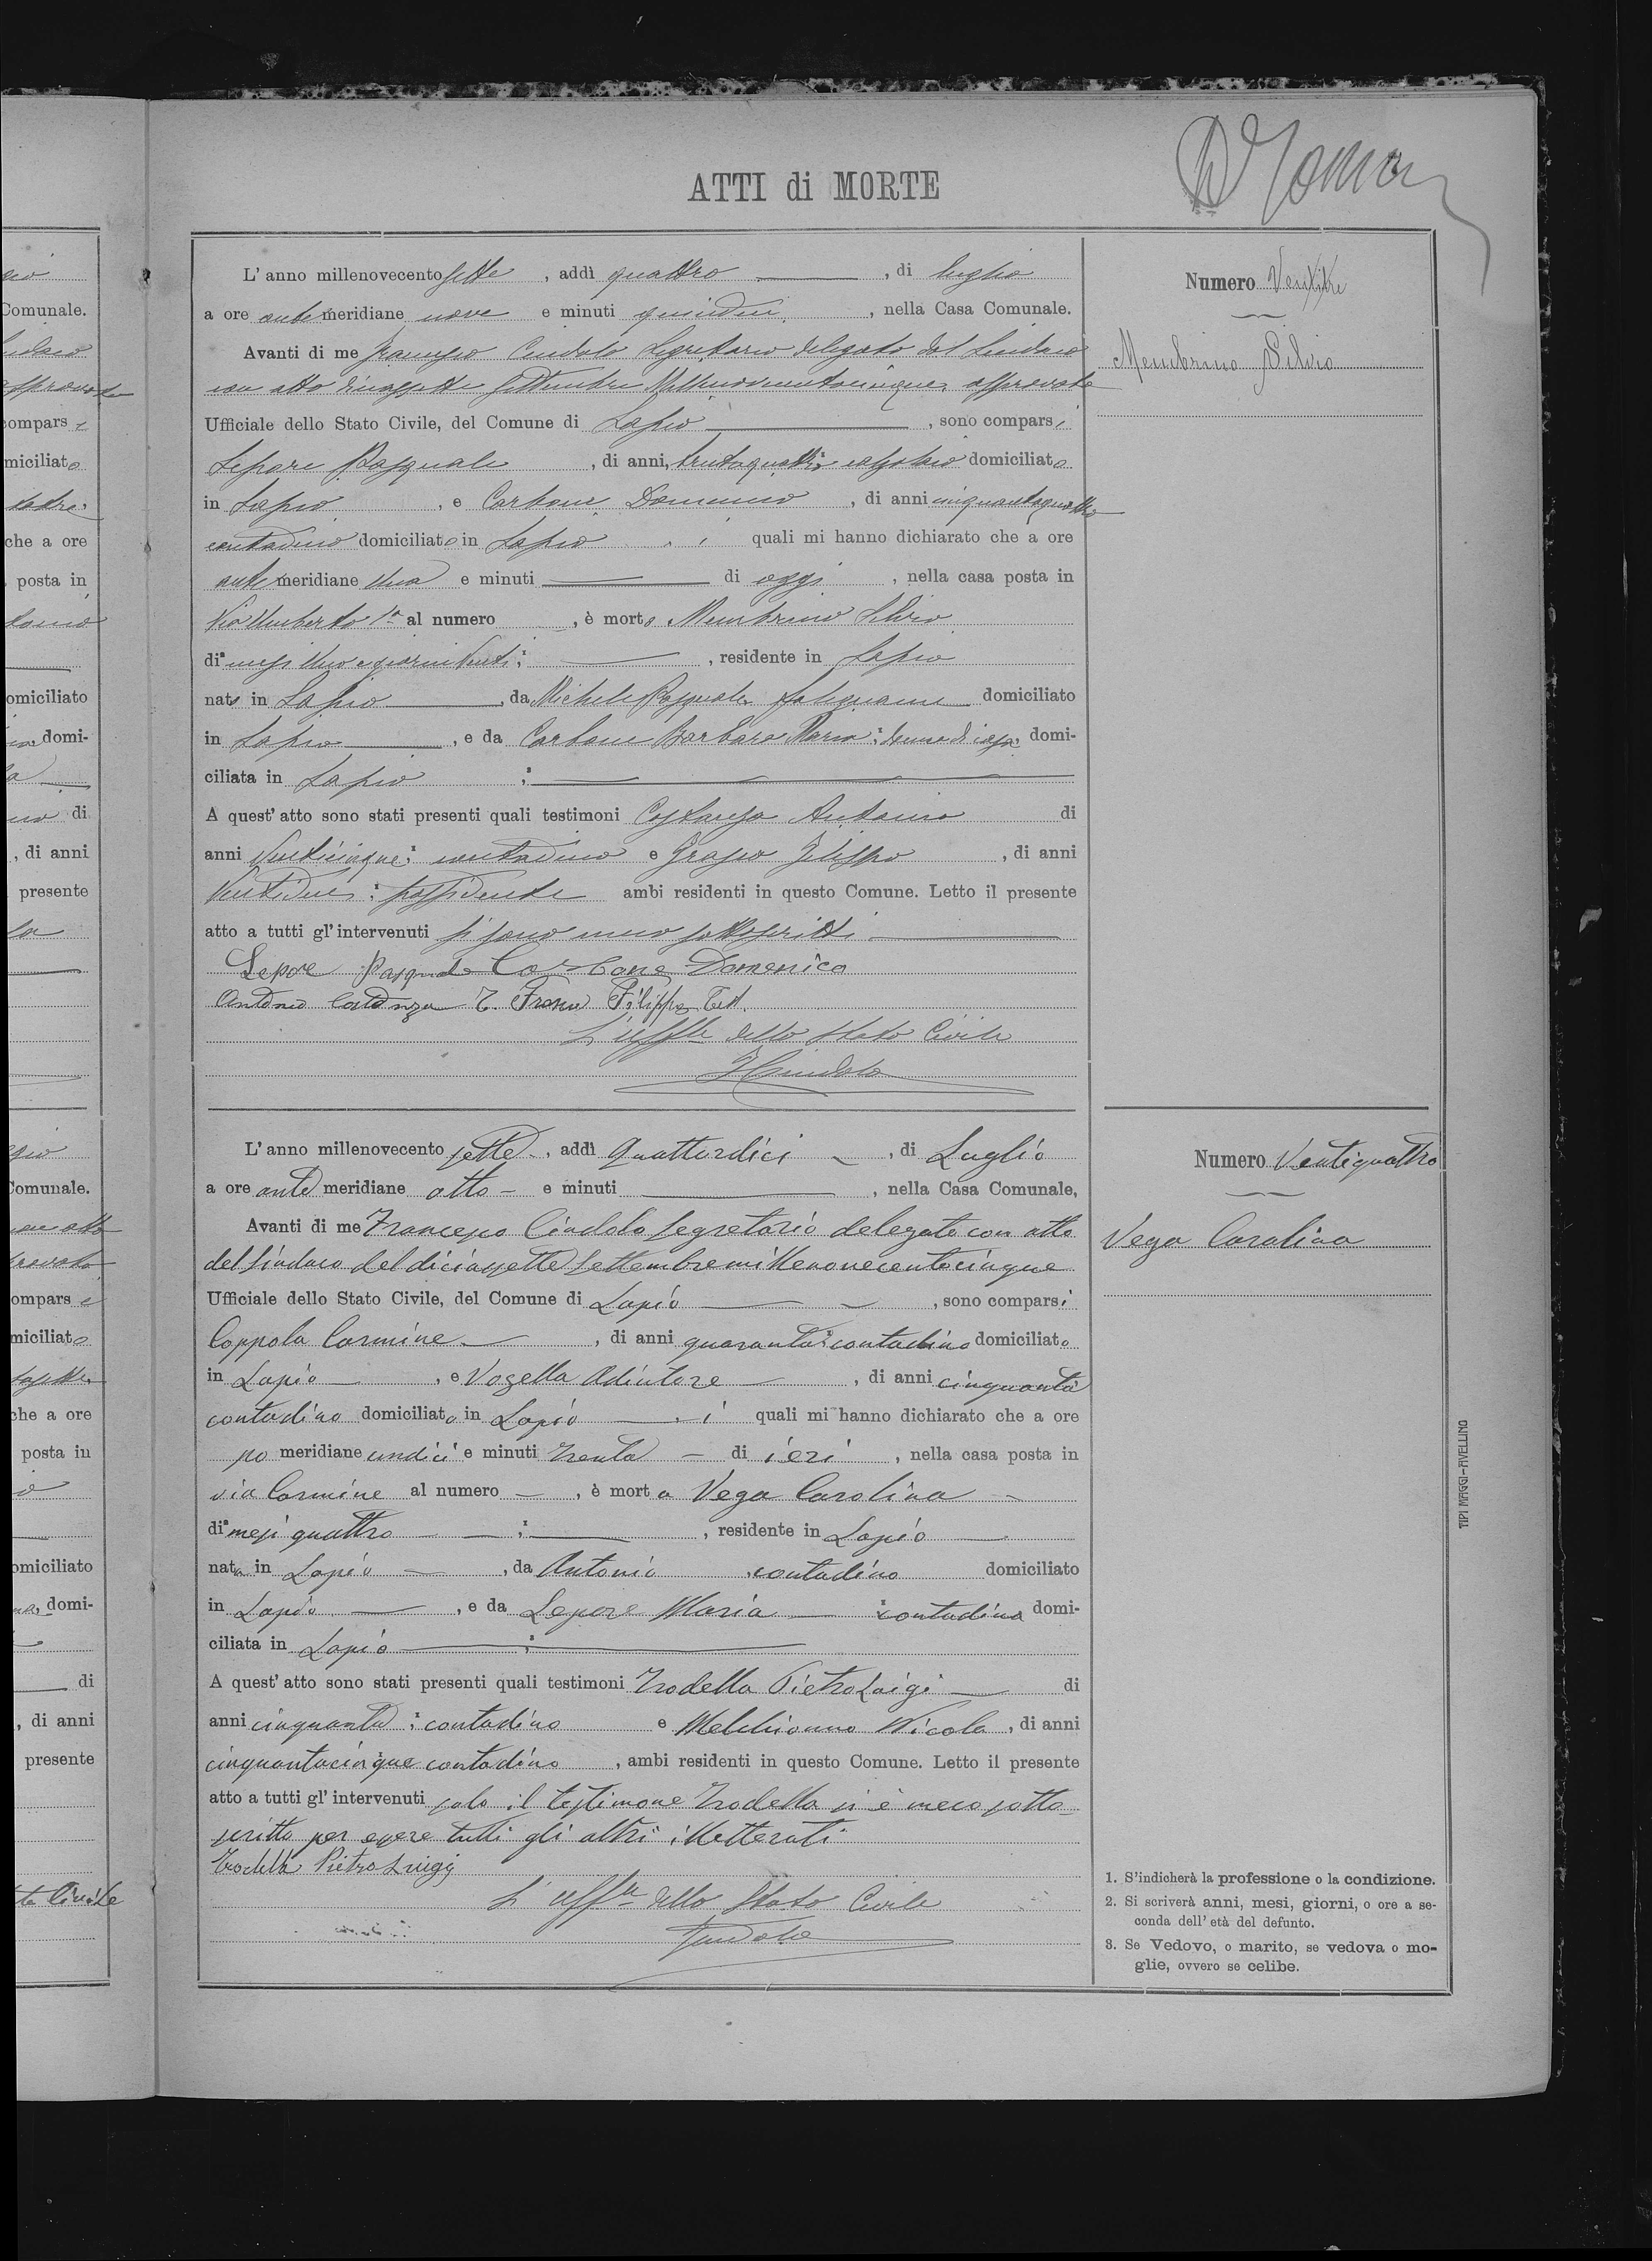 ATTI di MORTE
L' anno millenovecento sette, addì quattro, di luglio
a ore antemeridiane nove e minuti quindici, nella Casa Comunale.
Avanti di me Francesco Cindolo Segretario delegato dal Sindaco
con atto diciassette settembre Millenovecentocinque, approvato
Ufficiale dello Stato Civile, del Comune di Lapio, sono comparsi
Lepore Pasquale, di anni, trentaquattro domiciliato
in Lapio, e Carbone Domenico, di anni cinquantaquattro
contadino domiciliato in Lapio. i quali mi hanno dichiarato che a ore
antemeridiane una e minuti di oggi, nella casa posta in
Via Umberto 1º al numero, è morto Membrino Silvio
di mesi uno e giorni venti:, residente in Lapio
nato in Lapio, da Michele Pasquale falegname domiciliato
in Lapio, e da Carbone Barbara Maria: donna di casa, domi-
ciliata in Lapio:
A quest' atto sono stati presenti quali testimoni Costanza Antonio di
anni Venticinque: contadino e Filippo, di anni
Ventidue: possidente ambi residenti in questo Comune. Letto il presente
atto a tutti gl' intervenuti si sono meco sottoscritti
Lepore Pasquale Carbone Domenico
Antonio Costanza T. Filippo Test.
L'uffle dello Stato Civile
FCindolo
Numero Ventitre
Membrino Silvio
L' anno millenovecento sette, addì quattordici, di Luglio
a ore antemeridiane otto e minuti, nella Casa Comunale,
Avanti di me Francesco Cindolo segretario delegato con atto
del sindaco del diciassette settembre millenovecentocinque
Ufficiale dello Stato Civile, del Comune di Lapio, sono comparsi
Coppola Carmine, di anni quaranta: contadino domiciliato
in Lapio, e Vozella Adiutore, di anni cinquanta
contadino domiciliato in Lapio. i quali mi hanno dichiarato che a ore
pomeridiane undici e minuti trenta di ieri, nella casa posta in
via Carmine al numero, è morta Vega Carolina
di mesi quattro:, residente in Lapio
nata in Lapio, da Antonio, contadino domiciliato
in Lapio, e da Lepore Maria: contadina domi-
ciliata in Lapio:
A quest' atto sono stati presenti quali testimoni Trodella Pietro Luigi di
anni cinquanta: contadino e Melchionno Nicola, di anni
cinquantacinque contadino, ambi residenti in questo Comune. Letto il presente
atto a tutti gl' intervenuti solo il testimone Trodella si è meco sotto-
scritto per essere tutti gli altri illetterati
Trodella Pietro Luigi
L'uffle dello Stato Civile
FCindolo
Numero Ventiquattro
Vega Carolina
1. S'indicherà la professione o la condizione.
2. Si scriverà anni, mesi, giorni, o ore a se-
conda dell' età del defunto.
3. Se Vedovo, o marito, se vedova o mo-
glie, ovvero se celibe.
TIPI MAGGI-AVELLINO